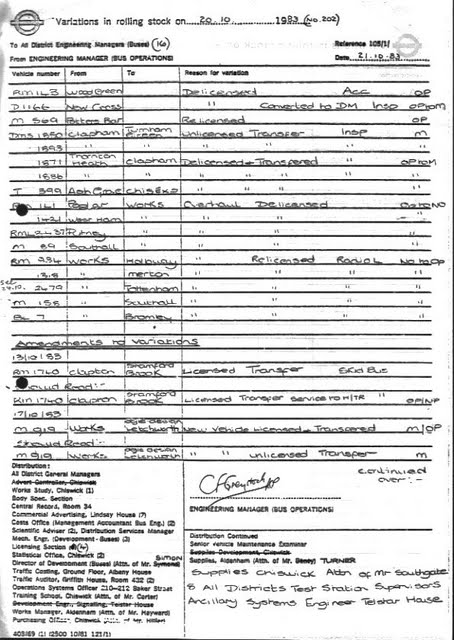 Variations in rolling stock on 20.10 1983 (NO. 202)
To All District Engineering Managers (Buses)
Reference 105/1/
From ENGINEERING MANAGER (BUS OPERATIONS)
Date 21.10.83
Vehicle number From To Reason for variation
RM 143 Wood Green Delicensed Acc OP
D 1166 New Cross " Converted to DM Insp OPTOM
M 569 Potters Bar Relicensed OP
DMS 1850 Clapham Turnham Green Unlicensed Transfer Insp M
1893 " " " " "
1871 Thornton Heath Clapham Delicensed + Transfered " OPTOM
1886 " " " " "
T 399 Ash Grove Chis Exp " " "
RM 141 Poplar Works Overhaul Delicensed OPTONO
1421 West Ham " " "
RML 2437 Putney " " "
M 89 Southall " " "
RM 234 Works Holloway " Relicensed Radial NOTOOP
1318 " Merton " " "
2479 " Tottenham " " "
M 158 " Southall " "
BL 7 " Bromley " "
Amendments to variations
13/10/83
RM 1740 Clapton Stamford Brook Licensed Transfer Skid Bus
Should Read:-
RM 1740 Clapton Stamford Brook Licensed Transfer Service to H/TR " OP/NP
17/10/83
M 919 Works Letchworth New Vehicle Licensed + Transfered M/OP
Should Read:-
M 919 Works Letchworth " " Unlicensed Transfer M
continued over:-
Distribution:
All District General Managers
Advert Controller, Chiswick
Works Study, Chiswick (1)
Body Spec. Section
Central Record, Room 34
Commercial Advertising, Lindsey House (7)
Costs Office (Management Accountant Bus Eng.) (2)
Scientific Adviser (2), Distribution Services Manager
Mech. Engr. (Development - Buses) (3)
Licensing Section
Statistical Office, Chiswick (2)
Director of Development (Buses) (Attn. of Mr. SIMON
Traffic Costing, Ground Floor, Albany House
Traffic Auditor, Griffith House, Room 432 (2)
Operations Systems Officer 210-212 Baker Street
Training School, Chiswick (Attn. of Mr. Carter)
Development Engr., Signalling, Telstar House
Works Manager, Aldenham (Attn. of Mr. Hayward)
Purchasing Officer, Chiswick
ENGINEERING MANAGER (BUS OPERATIONS)
Distribution Continued
Senior Vehicle Maintenance Examiner
Supplies Development, Chiswick
Supplies, Aldenham (Attn. of Mr. TURNER
Supplies Chiswick Attn of Mr Southgate
8 All Districts Test Station Supervisors
Ancillary Systems Engineer Telstar House